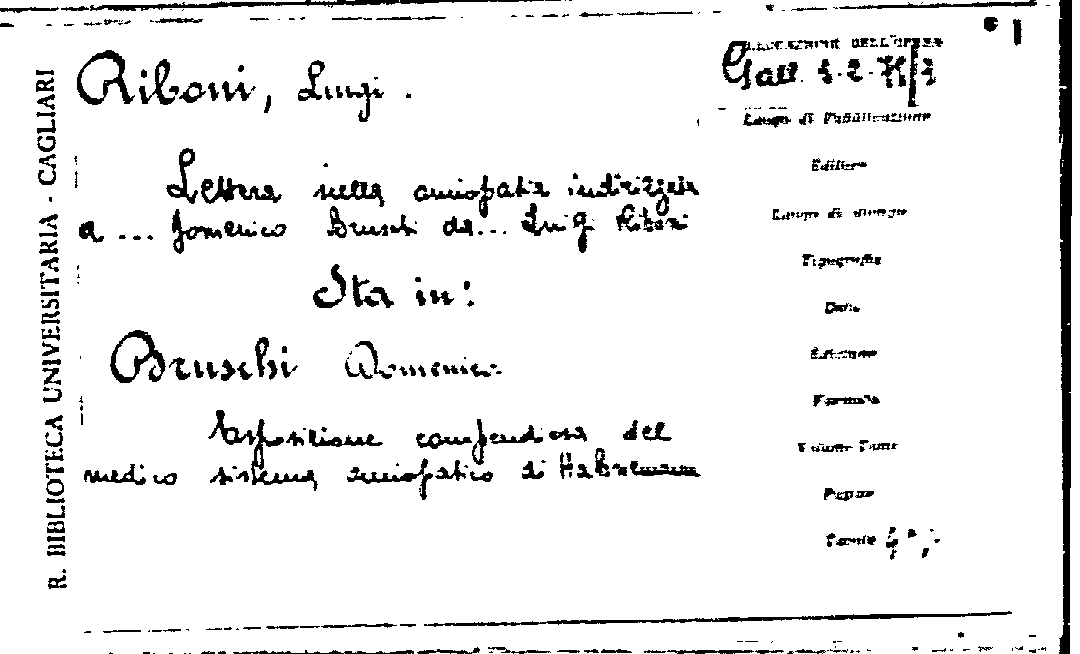 R. BIBLIOTECA UNIVERSITARIA - CAGLIARI
COLLOCAZIONE DELL'OPERA
Gall.
Riboni, Luigi.
Lettera sulla omiopatia indirizzata
a ... Domenico Bruschi da... Luigi Riboni
Sta in:
Bruschi Domenico
Esposizione compendiosa del
medico sistema omiopatico di Hahnemann
Luogo di Pubblicazione
Editore
Luogo di stampa
Tipografia
Data
Edizione
Formato
Volume Tomo
Pagine